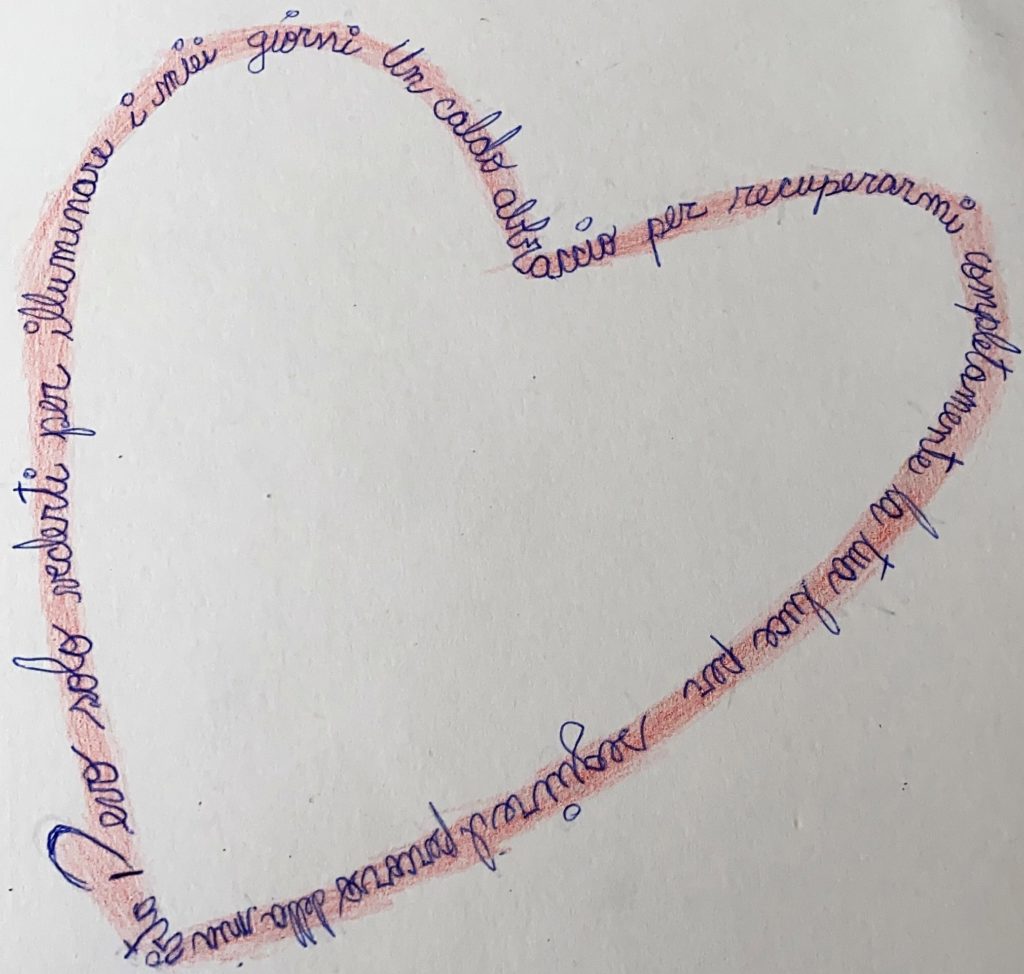 Devo solo vederti per illuminare i miei giorni Un caldo abbraccio per recuperarmi completamente la tua luce per seguire il percorso della mia vita